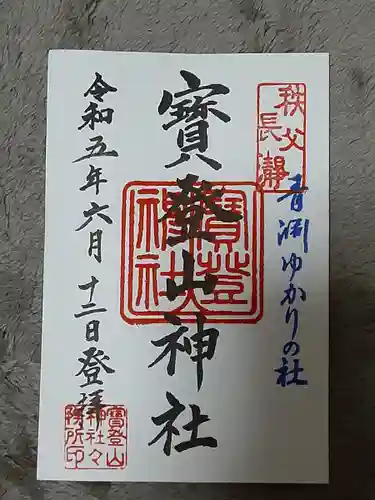 秩父
長瀞
青淵ゆかりの社
寶登山神社
寶登山神社
令和五年六月十二日登拝
寶登山
神社々
務所印